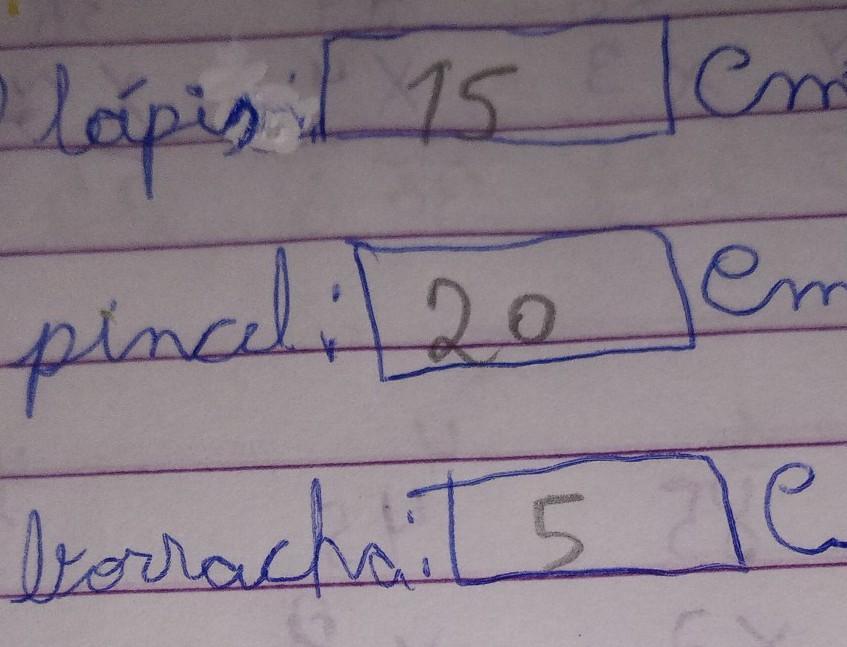 lápis: 15 cm
pincel: 20 cm
borracha: 5 c